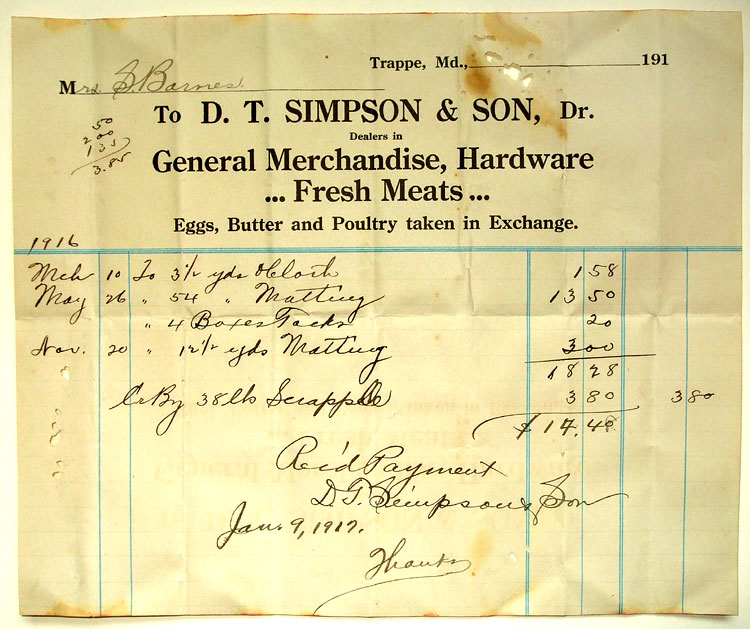 Trappe, Md., 191
Mrs. S Barnes.
To D. T. SIMPSON & SON, Dr.
50
2 00
1 35
3.85
Dealers in
General Merchandise, Hardware
... Fresh Meats ...
Eggs, Butter and Poultry taken in Exchange.
1916
Mch 10 To 3 1/2 yds O Cloth 1 58
May 26 " 54 " Matting 13 50
" 4 Boxes Tacks 20
Nov. 20 " 12 1/2 yds Matting 3 00
18 28
Cr By 38 lbs Scrapple 3 80 3 80
$ 14.48
Rec'd Payment
D.T. Simpson & Son
Jan. 9, 1917.
Thanks